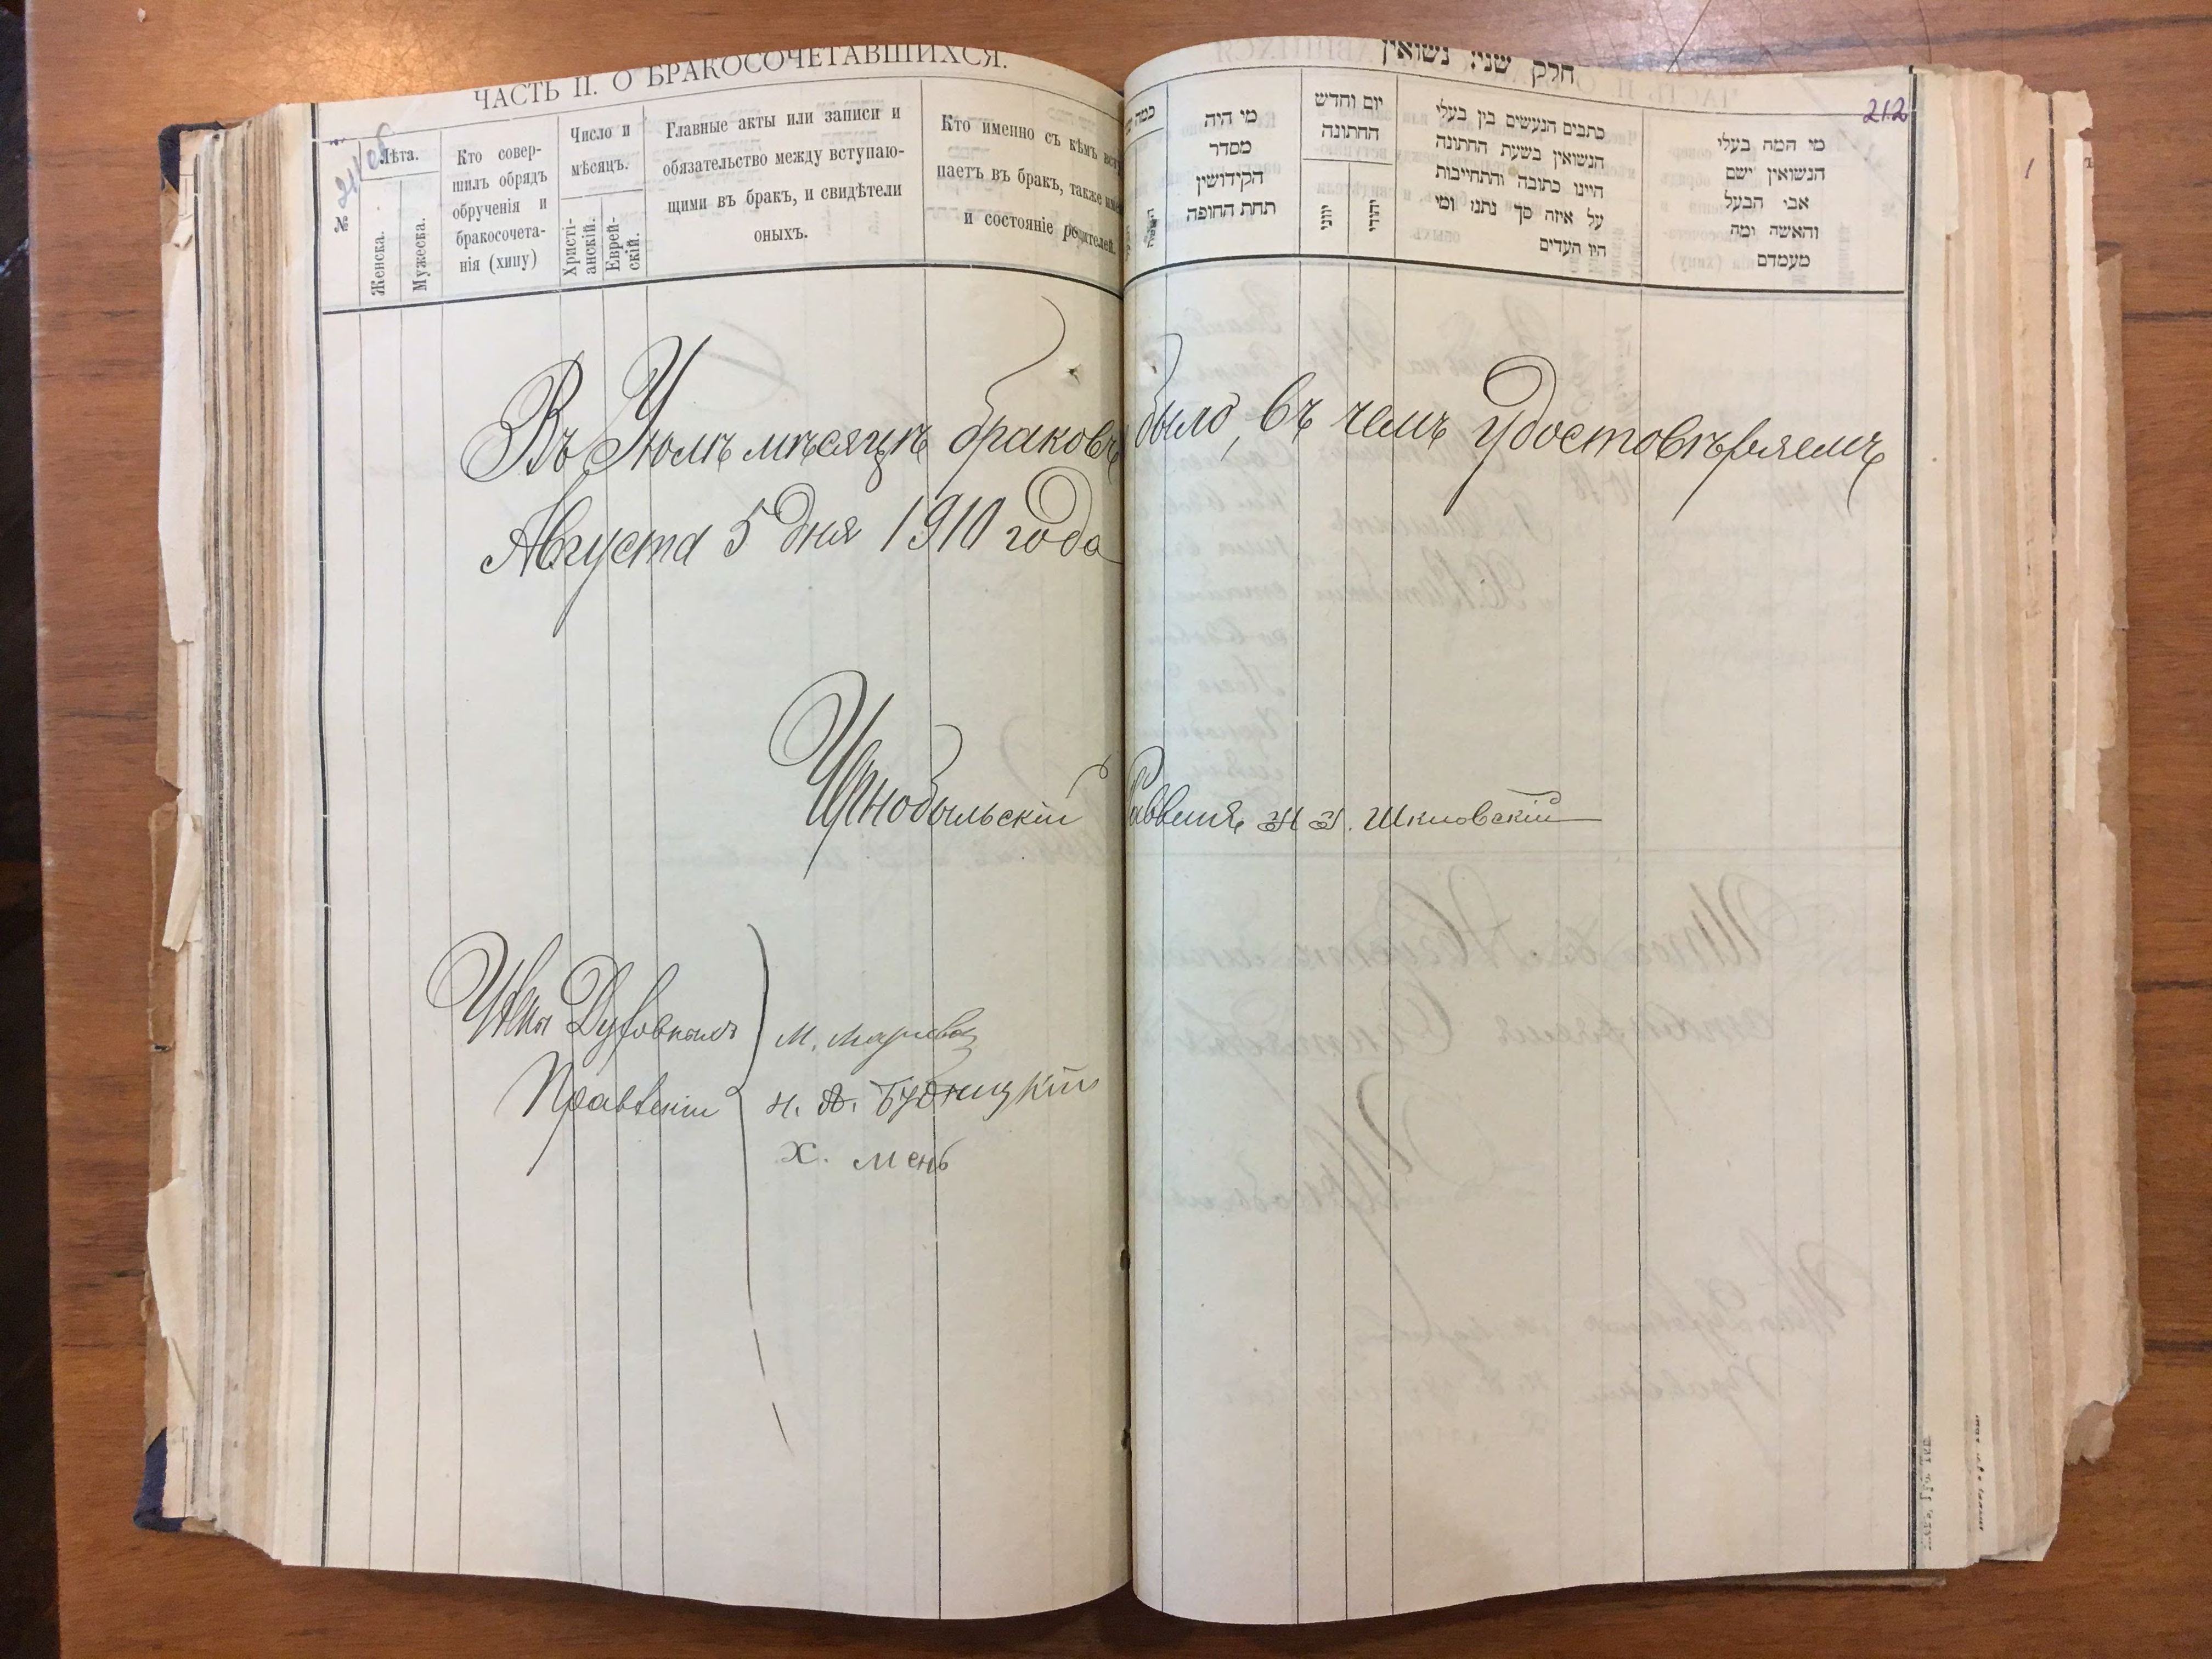 ЧАСТЬ II. О БРАКОСОЧЕТАВШИХСЯ.
№
Лѣта.
Женска.
Мужеска.
Кто совер-
шилъ обрядъ
обрученія и
бракосочета-
нія (хипу)
Число и
мѣсяцъ.
Христі-
анскій.
Еврей-
скій.
Главные акты или записи и
обязательство между вступаю-
щими въ бракъ, и свидѣтели
оныхъ.
Кто именно съ кѣмъ всту
паетъ въ бракъ, также име
и состояніе родителей.
חלק שני: נשואין
212
כמה
מי היה
מסדר
הקידושין
תחת החופה
יום וחדש
החתונה
יוני
יהודי
כתבים הנעשים בין בעלי
הנשואין בשעת החתונה
היינו כתובה והתחייבות
על איזה סך נתנו ומי
היו העדים
מי המה בעלי
הנשואין ושם
אבי הבעל
והאשה ומה
מעמדם
Въ Іюлѣ мѣсяцѣ браковъ было, въ чемъ удостовѣряемъ
Августа 5 дня 1910 года
Чернобыльскій Раввинъ Шкловскій
Члены Духовнаго
Правленія
М.
Н. Будницкій
Х. Мень